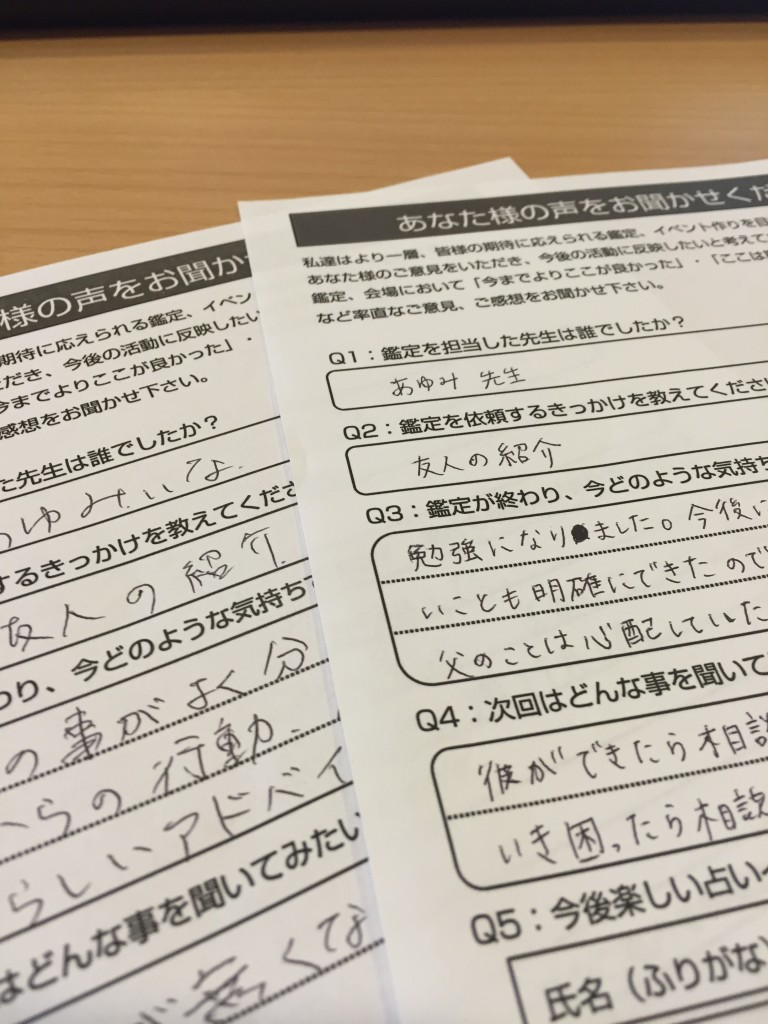 あなた様の声をお聞かせくだ
私達はより一層、皆様の期待に応えられる鑑定、イベント作りを目
あなた様のご意見をいただき、今後の活動に反映したいと考えて
鑑定、会場において「今までよりここが良かった」・「ここは
など率直なご意見、ご感想をお聞かせ下さい。
Q1：鑑定を担当した先生は誰でしたか？
あゆみ 先生
Q2：鑑定を依頼するきっかけを教えてくださ
友人の紹介
Q3：鑑定が終わり、今どのような気持ち
勉強になりました。今後に
いことも明確にできたので
父のことは心配していた
Q4：次回はどんな事を聞いて
彼ができたら相談
いき困ったら相談
Q5：今後楽しい占い
氏名（ふりがな）
様の声をお聞かせ
期待に応えられる鑑定、イベン
だき、今後の活動に反映したい
今までよりここが良かった」・
感想をお聞かせ下さい。
た先生は誰でしたか？
ゆみ
するきっかけを教えてくださ
友人の紹介
わり、今どのような気持ち
の事がよく分
からの行動
らしいアドバイ
はどんな事を聞いてみたい
が無くな